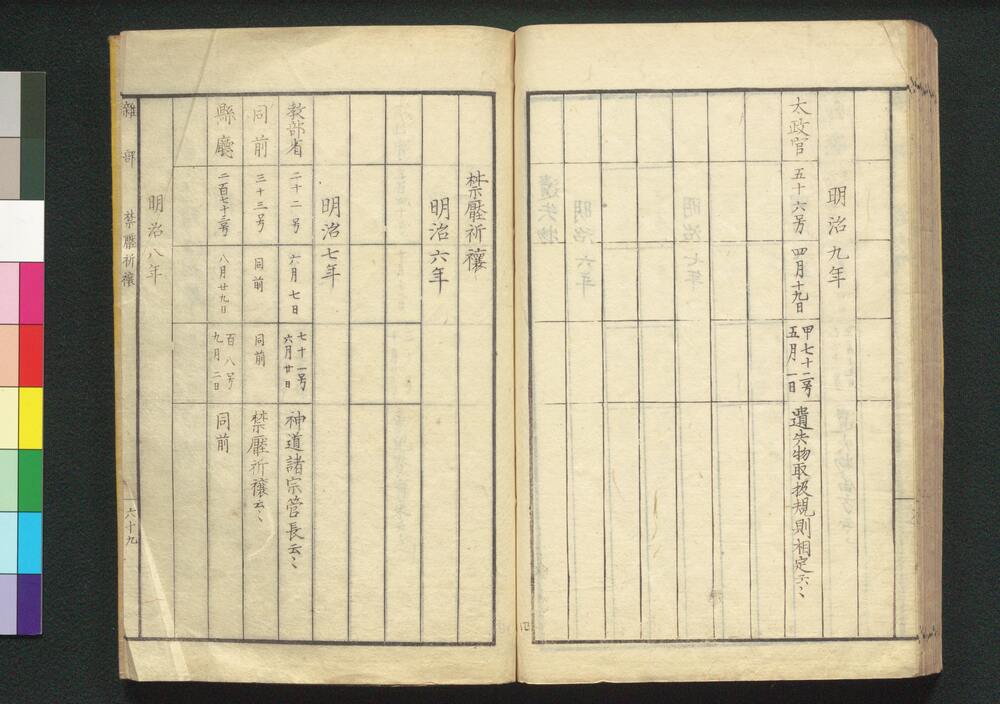 明治九年
太政官 五十六号 四月十九日 甲七十二号 五月一日 遺失物取扱規則相定云〻
禁厭祈禳
明治六年
明治七年
教部省 二十二号 六月七日 七十一号 六月廿日 神道諸宗管長云〻
同前 三十三号 同前 同前 禁厭祈禳云〻
縣廳 二百七十三号 八月廿九日 百八号 九月二日 同前
明治八年
雜部 禁厭祈禳 六十九